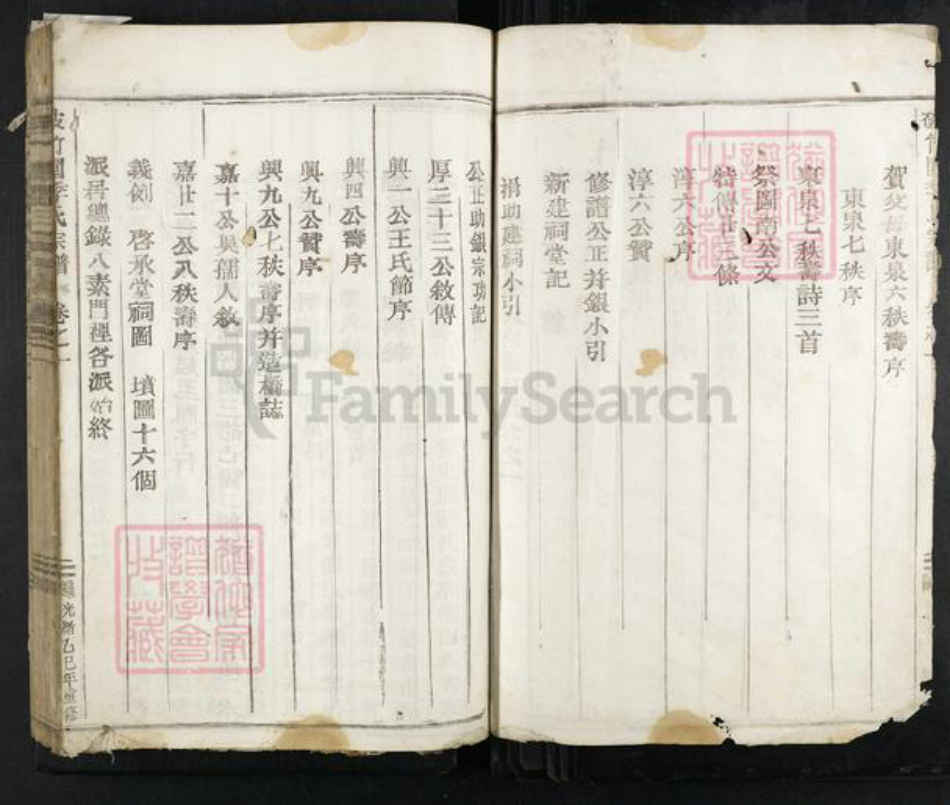 賀父母東泉六秩壽序
東泉七秩序
東泉七秩壽詩三首
祭圖南公文
特傳廿三條
淳六公序
淳六公贊
修譜公正并銀小引
新建祠堂記
捐助建祠小引
公正助銀宗功記
厚三十三公敘傳
興一公王氏節序
興四公壽序
興九公贊序
興九公七秩壽序并造橋誌
嘉十公吳孺人敘
嘉廿二公八秩壽序
義例 啓承堂祠圖 墳圖十六個
派爯總錄八素門裡各派始終
竹園李氏宗譜 卷之一
光緒乙巳年重修
譜學會
收藏
FamilySearch